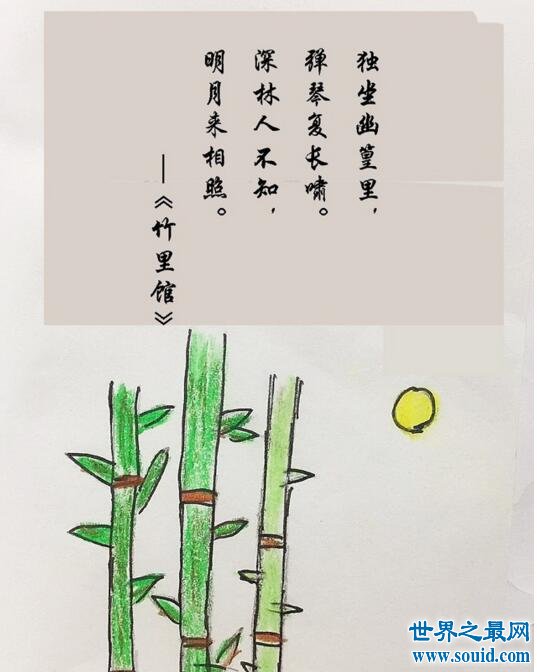 独坐幽篁里，
弹琴复长啸。
深林人不知，
明月来相照。
—《竹里馆》
世界之最网
www.souid.com